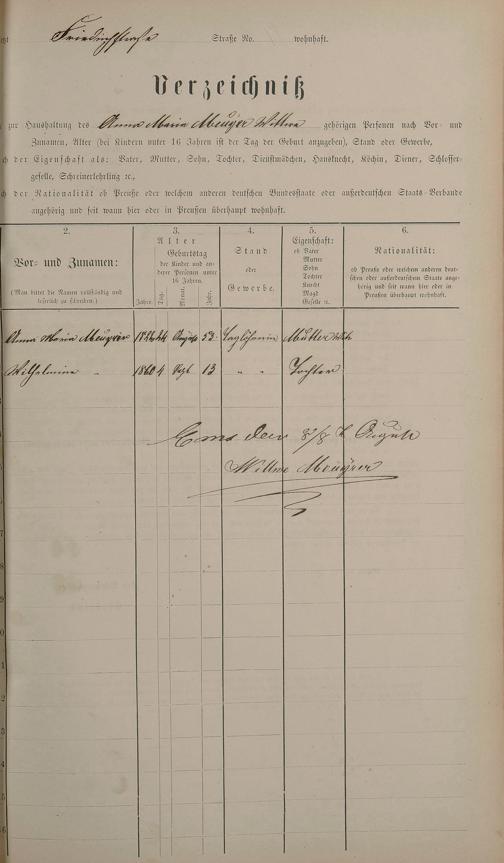 Friedrichstraße Straße No. wohnhaft.
Verzeichniß
zur Haushaltung des Anna Maria Wittwe gehörigen Personen nach Vor- und
Zunamen, Alter (bei Kindern unter 16 Jahren ist der Tag der Geburt anzugeben), Stand oder Gewerbe,
der Eigenschaft als: Vater, Mutter, Sohn, Tochter, Dienstmädchen, Hausknecht, Köchin, Diener, Schlosser-
geselle, Schreinerlehrling ꝛc.,
der Nationalität ob Preuße oder welchem anderen deutschen Bundesstaate oder außerdeutschen Staats-Verbande
angehörig und seit wann hier oder in Preußen überhaupt wohnhaft.
2.
Vor- und Zunamen:
(Man bittet die Namen vollständig und
leserlich zu schreiben.)
3.
Alter
Geburtstag
der Kinder und an-
derer Personen unter
16 Jahren.
Jahre. Tag. Monat. Jahr.
4.
Stand
oder
Gewerbe.
5.
Eigenschaft:
ob Vater
Mutter
Sohn
Tochter
Knecht
Magd
Geselle ꝛc.
6.
Nationalität:
ob Preuße oder welchem anderen deut-
schen oder außerdeutschen Staate ange-
hörig und seit wann hier oder in
Preußen überhaupt wohnhaft.
Anna Maria 53 Taglöhnerin Mutter
Wilhelmine " 1860 4 Sept 13 " " Tochter
Ems den August
Wittwe